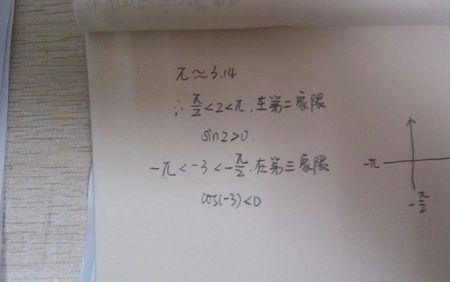 π≈3.14
∴ π/2<2<π, 在第二象限
sin2>0
-π<-3<-π/2, 在第三象限
cos(-3)<0
-π
-π/2